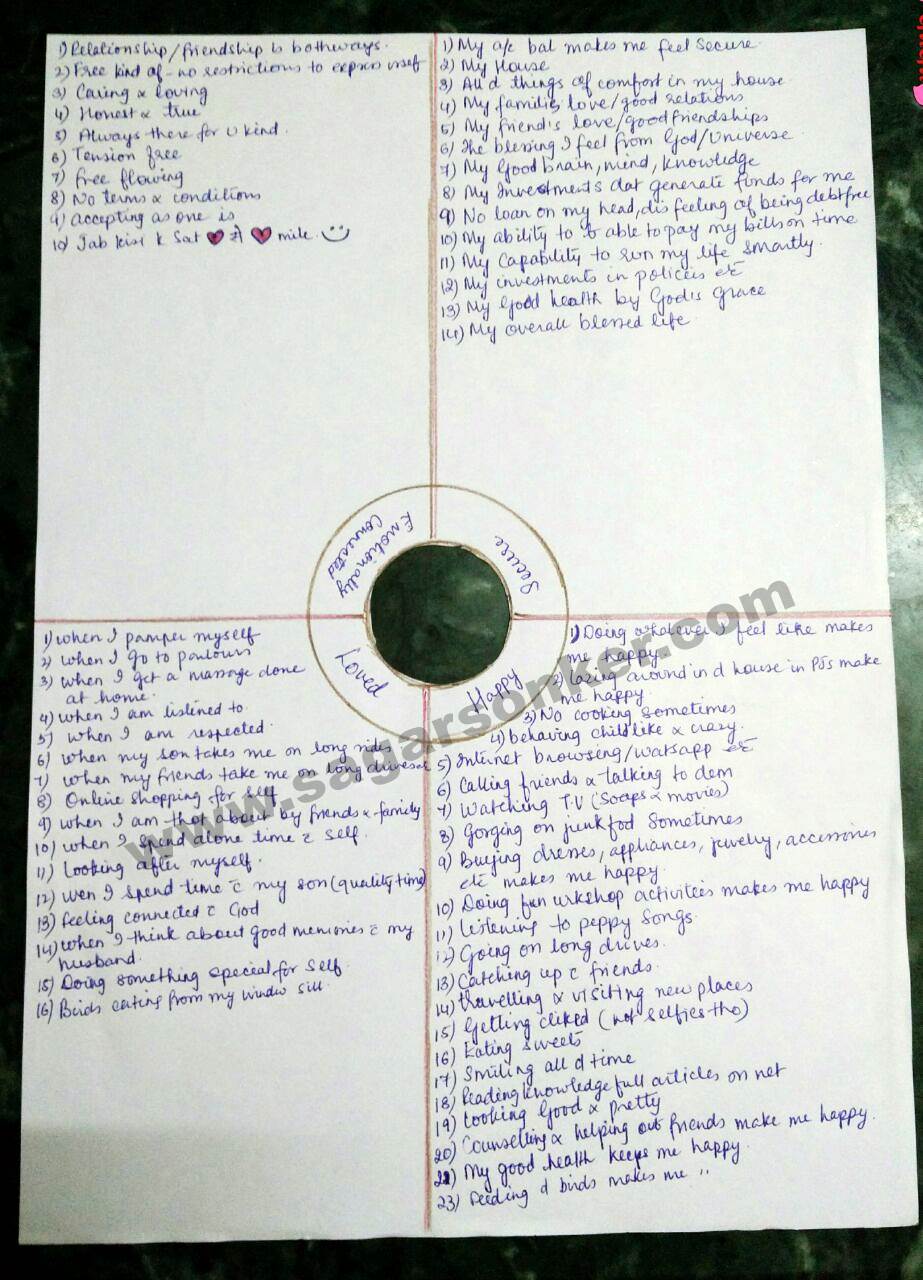 1) Relationship/friendship is bothways.
2) Free kind of - no restrictions to express urself
3) Caring & loving
4) Honest & true
5) Always there for u kind.
6) Tension free
7) free flowing
8) No terms & conditions
9) accepting as one is
10) Jab kisi k Sat ❤ से ❤ mile. 🙂
1) My a/c bal makes me feel secure
2) My House
3) All d things of comfort in my house
4) My families love/good relations
5) My friend's love/good friendships
6) The blessing I feel from God/Universe
7) My Good brain, mind, knowledge
8) My Investments dat generate funds for me
9) No loan on my head, dis feeling of being debtfree
10) My ability to b able to pay my bills on time
11) My capability to run my life smartly.
12) My investments in policies etc
13) My Good health by God's Grace
14) My overall blessed life
Emotionally
Connected
Secure
Loved
Happy
1) when I pamper myself
2) when I go to parlours
3) when I get a massage done
at home.
4) when I am listened to
5) when I am respected.
6) when my son takes me on long rides
7) when my friends take me on long drives
8) Online shopping for self
9) when I am thot about by friends & family
10) when I spend alone time c̄ self.
11) Looking after myself.
12) wen I spend time c̄ my son (quality time)
13) feeling connected c̄ God
14) when I think about good memories c̄ my
husband.
15) Doing something special for self.
16) Birds eating from my window sill.
1) Doing whatever I feel like makes
me happy
2) lazing around in d house in PJs make
me happy
3) No cooking sometimes
4) behaving childlike & crazy.
5) Internet browsing/watsapp etc
6) Calling friends & talking to dem
7) Watching T.V (Soaps & movies)
8) Gorging on junk fod sometimes
9) Buying dresses, appliances, jewelry, accessories
etc makes me happy.
10) Doing fun wrkshop activities makes me happy
11) listening to peppy songs
12) Going on long drives.
13) Catching up c̄ friends.
14) travelling & visiting new places
15) Getting cliked (not selfies tho)
16) Eating sweets
17) Smiling all d time
18) Reading knowledgefull articles on net
19) looking Good & pretty
20) Counselling & helping out friends make me happy.
22) My good health keeps me happy.
23) feeding d birds makes me ,,
www.sagarsonker.com